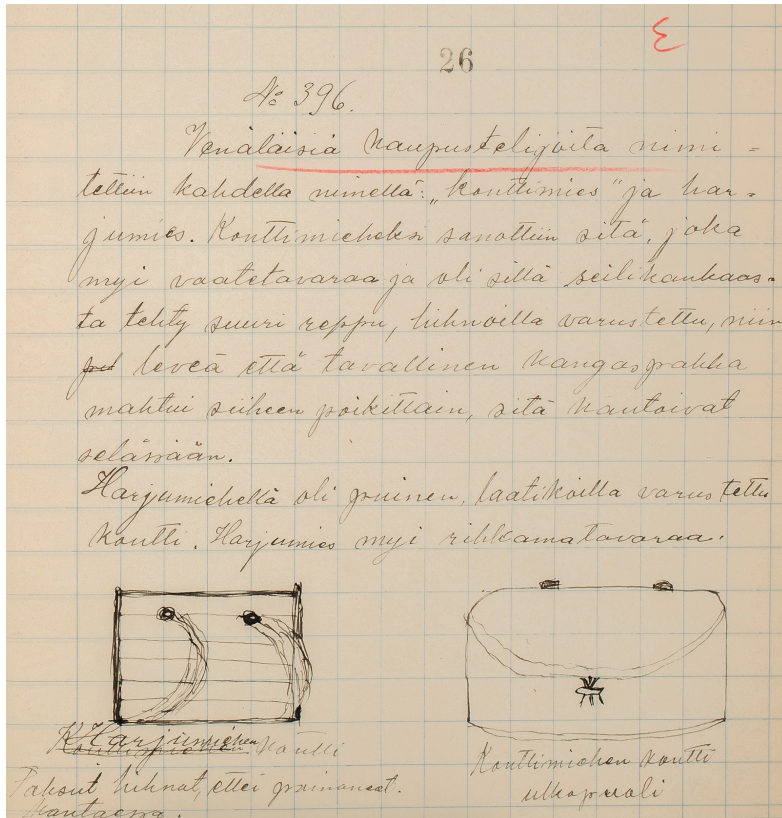 26
№ 396.
Venäläisiä kaupustelijoita nimi=
tettiin kahdella nimellä: „konttimies" ja har=
jumies. Konttimieheksi sanottiin sitä, joka
myi vaatetavaraa ja oli sillä seilikankaas=
ta tehty suuri reppu, hihnoilla varustettu, niin
leveä että tavallinen kangaspakka
mahtui siiheen poikittain, sitä kantoivat
selässään.
Harjumiehellä oli puinen, laatikoilla varustettu
kontti. Harjumies myi rihkamatavaraa.
Harjumiehen kontti
Paksut hihnat, ettei painaneet.
kantaessa.
Konttimiehen kontti
ulkopuoli